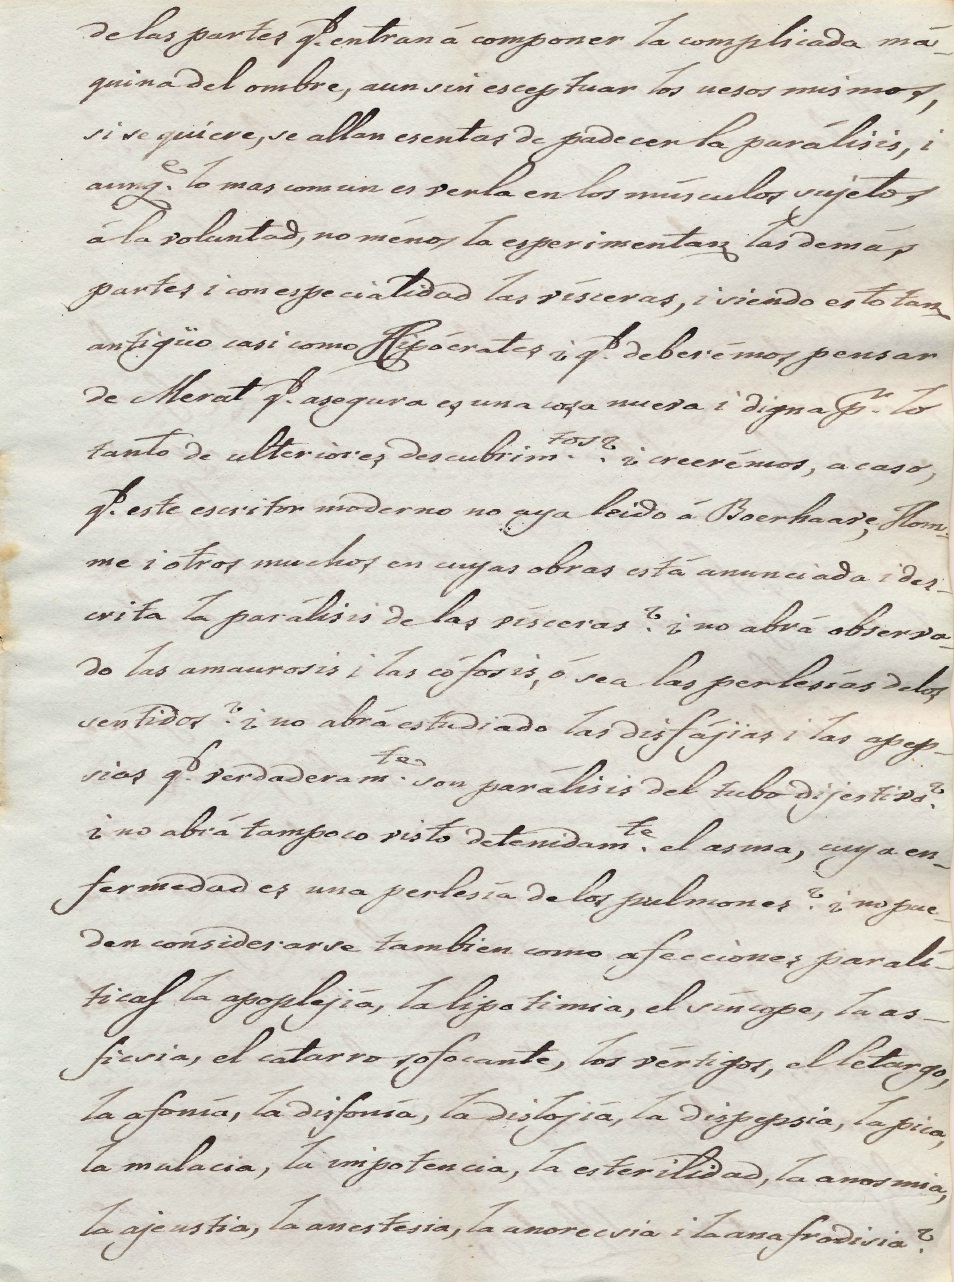 de las partes q.e entran á componer la complicada má-
quina del ombre, aun sin esceptuar los uesos mismos,
si se quiere, se allan esentas de padecer la parálisis, i
aunq.e lo mas comun es verla en los músculos sujetos
á la voluntad, no ménos la esperimentan las demás
partes i con especialidad las vísceras, i siendo esto tan
antigüo casi como Hipócrates ¿ q.e deberémos pensar
de Merat q.e asegura es una cosa nueva i digna p.r lo
tanto de ulteriores descubrim.tos? ¿ creerémos, acaso,
q.e este escritor moderno no aya leido á Boerhaave, Hom-
me i otros muchos en cuyas obras está anunciada i des-
crita la parálisis de las vísceras? ¿ no abrá observa-
do las amaurosis i las cófosis, ó sea las perlesías de los
sentidos? ¿ no abrá estudiado las disfájias i las apep-
sias q.e verdaderam.te son parálisis del tubo dijestivo?
¿ no abrá tampoco visto detenidam.te el asma, cuya en-
fermedad es una perlesía de los pulmones? ¿ no pue-
den considerarse tambien como afecciones paralí-
ticas la apoplejía, la lipotimia, el síncope, la as-
ficsia, el catarro sofocante, los vértigos, el letargo,
la afonía, la disfonía, la dislojía, la dispepsia, la pica,
la malacia, la impotencia, la esterilidad, la anosmia,
la ajeustia, la anestesia, la anorecsia i la anafrodisia?